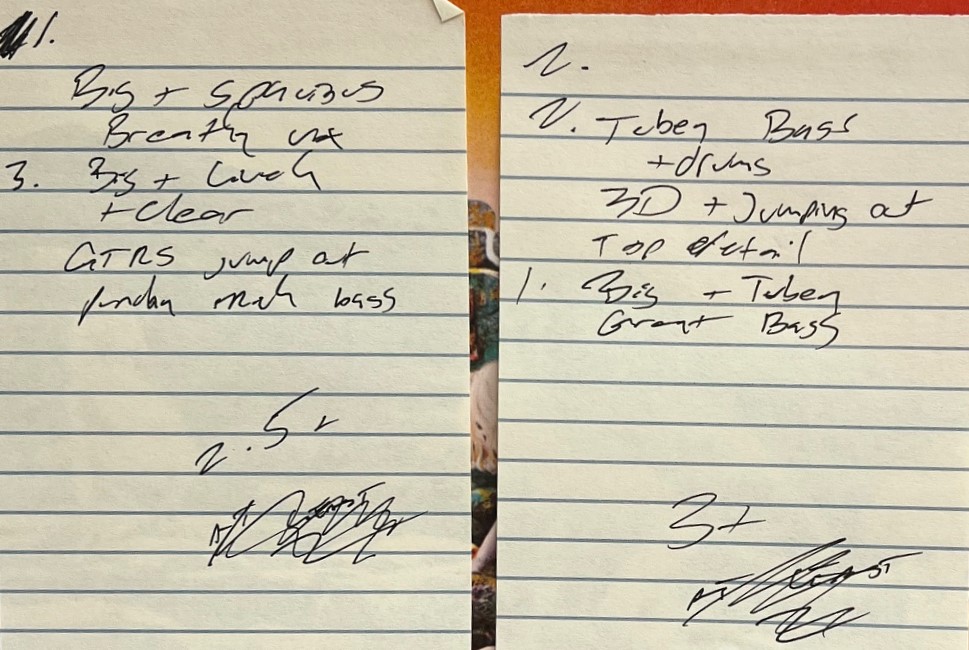 1.
Big + Spacious
Breathy vox
3. Big + Lush
+ Clear
GTRS jump out
punchy bass
2.5+
2.
2. Tubey Bass
+ drums
3D + Jumping out
Top detail
1. Big + Tubey
Great Bass
3+